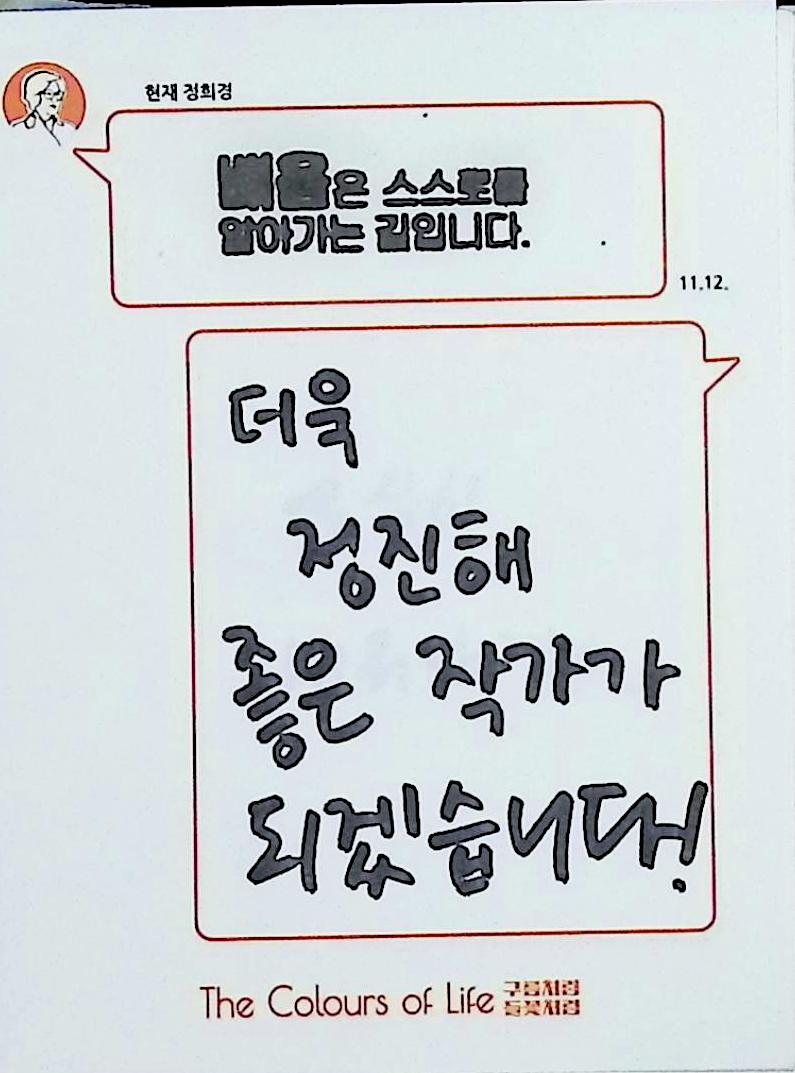 현재 정희경
배움은 스스로를
알아가는 길입니다.
11.12.
더욱
정진해
좋은 작가가
되겠습니다!
The Colours of Life 구름처럼
들꽃처럼